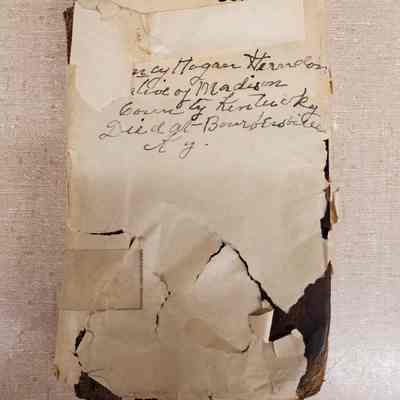 ncy Hogan Herndon
ative of Madison
County Kentucky
Died at Bourbersville
Ky.